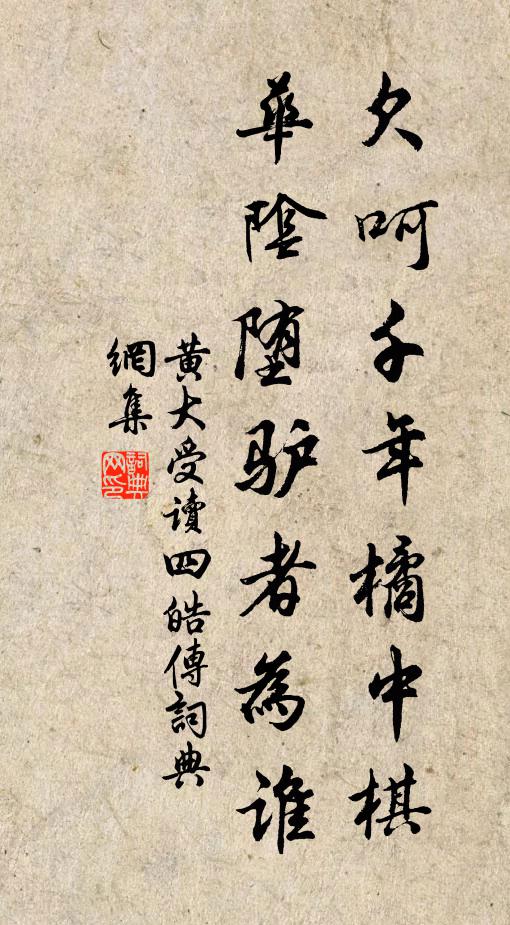 欠呵千年橘中棋
華陰堕驴者為谁
黄大受讀四皓傳詞典
網集
詞典
网印